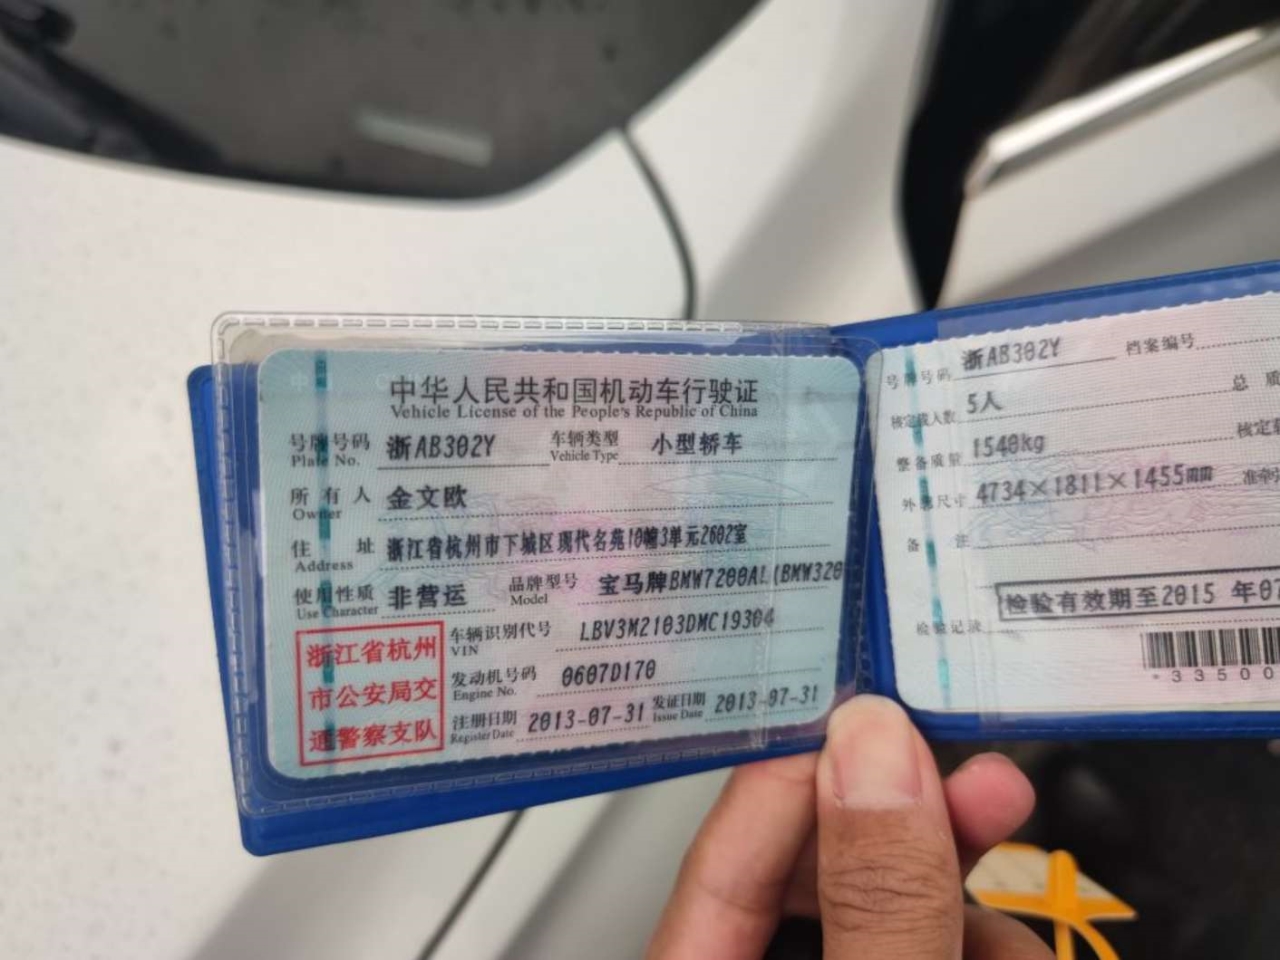 中华人民共和国机动车行驶证
Vehicle License of the People's Republic of China
号牌号码 浙AB302Y 车辆类型 小型轿车
Plate No. Vehicle Type
所有人 金文欧
Owner
住址 浙江省杭州市下城区现代名苑10幢3单元2602室
Address
使用性质 非营运 品牌型号 宝马牌BMW7200AL(BMW320
Use Character Model
浙江省杭州
市公安局交
通警察支队
车辆识别代号 LBV3M2103DMC19304
VIN
发动机号码 0607D170
Engine No.
注册日期 2013-07-31 发证日期 2013-07-31
Register Date Issue Date
号牌号码 浙AB302Y 档案编号
核定载人数 5人 总质
整备质量 1540kg 核定载
外廓尺寸 4734×1811×1455mm 准牵引
备注
检验有效期至2015年07
检验记录
33500